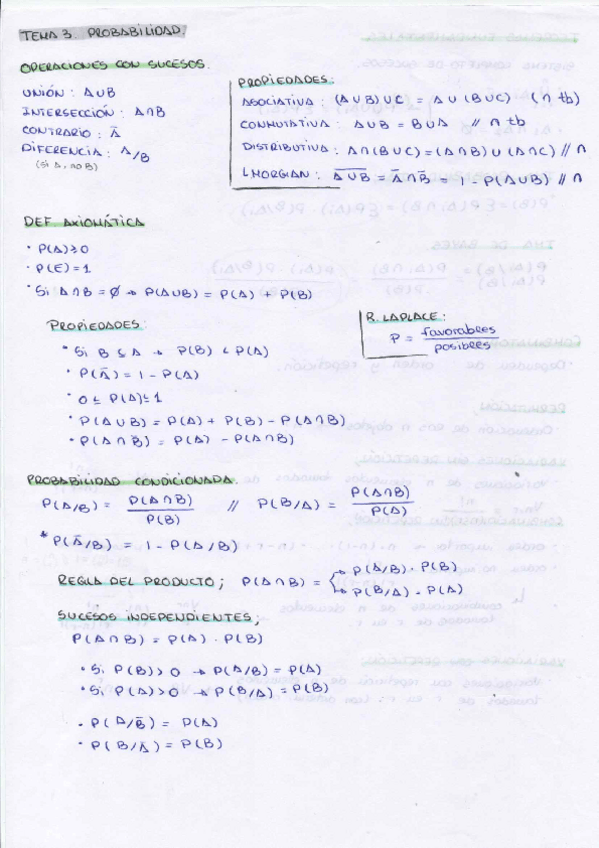 TEMA 3. PROBABILIDAD.
OPERACIONES CON SUCESOS.
UNIÓN: A∪B
INTERSECCIÓN: A∩B
CONTRARIO: Ā
DIFERENCIA: A/B
(si A, no B)
PROPIEDADES:
ASOCIATIVA: (A∪B)∪C = A∪(B∪C) (∩ tb)
CONMUTATIVA: A∪B = B∪A // ∩ tb
DISTRIBUTIVA: A∩(B∪C) = (A∩B)∪(A∩C) // ∩
LMORGIAN: A̅∪̅B̅ = Ā∩B̅ = 1 - P(A∪B) // ∩
DEF AXIOMÁTICA
· P(A)≥0
· P(E)=1
· Si A∩B = ∅ → P(A∪B) = P(A) + P(B)
PROPIEDADES:
· Si B ≤ A → P(B) < P(A)
· P(Ā) = 1 - P(A)
· 0 ≤ P(A) ≤ 1
· P(A∪B) = P(A) + P(B) - P(A∩B)
· P(A∩B̅) = P(A) - P(A∩B)
R. LAPLACE:
P = favorables / posibles
PROBABILIDAD CONDICIONADA.
P(A/B) = P(A∩B) / P(B) // P(B/A) = P(A∩B) / P(A)
* P(Ā/B) = 1 - P(A/B)
REGLA DEL PRODUCTO; P(A∩B) = → P(A/B) · P(B)
→ P(B/A) · P(A)
SUCESOS INDEPENDIENTES;
P(A∩B) = P(A) · P(B)
· Si P(B)>0 → P(A/B) = P(A)
· Si P(A)>0 → P(B/A) = P(B)
· P(A/B̅) = P(A)
· P(B/Ā) = P(B)